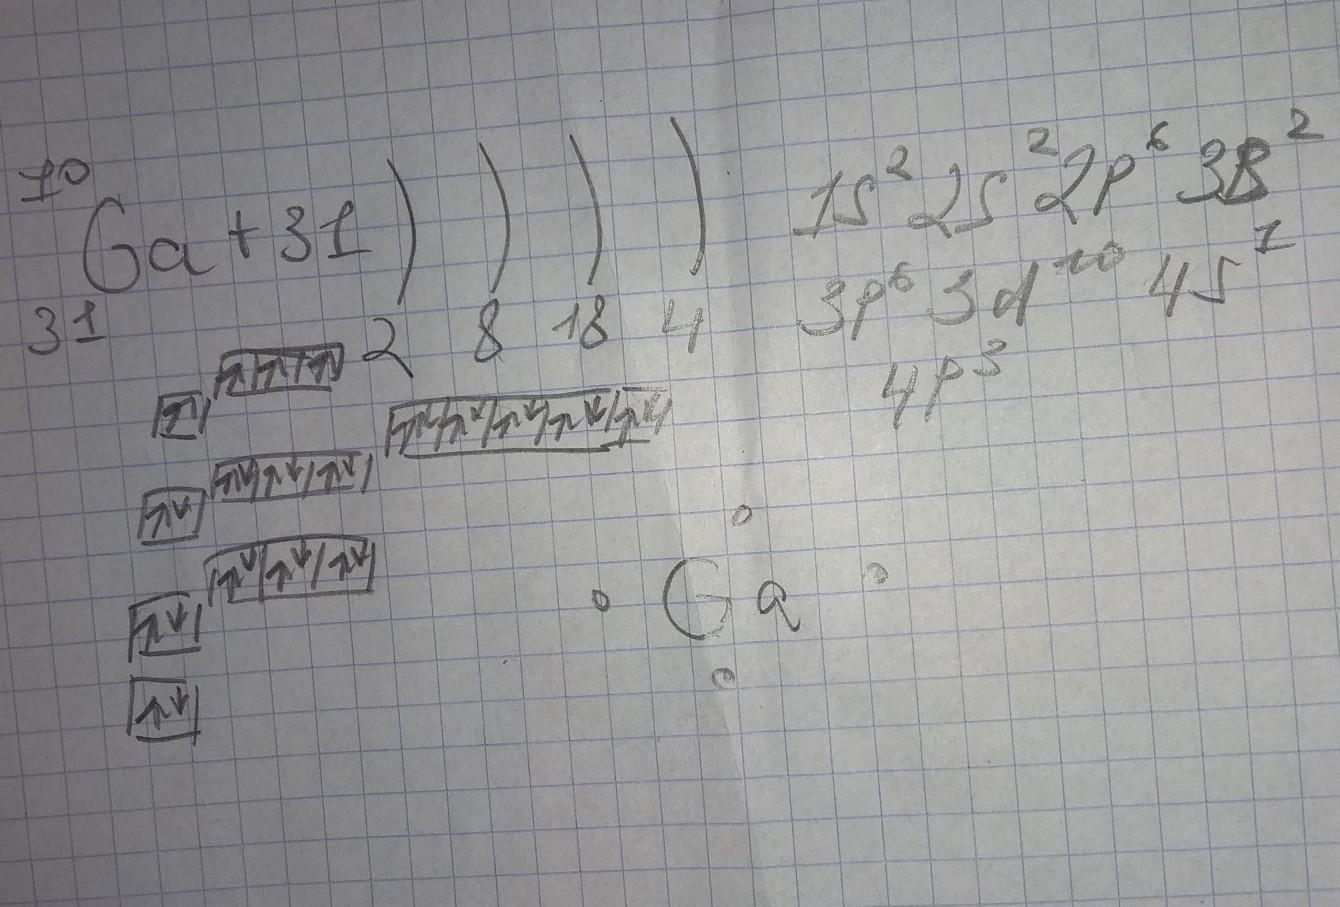 70
Ga + 31 ) ) ) )
31
2 8 18 4
1s² 2s² 2p⁶ 3s²
3p⁶ 3d¹⁰ 4s¹
4p³
Ga